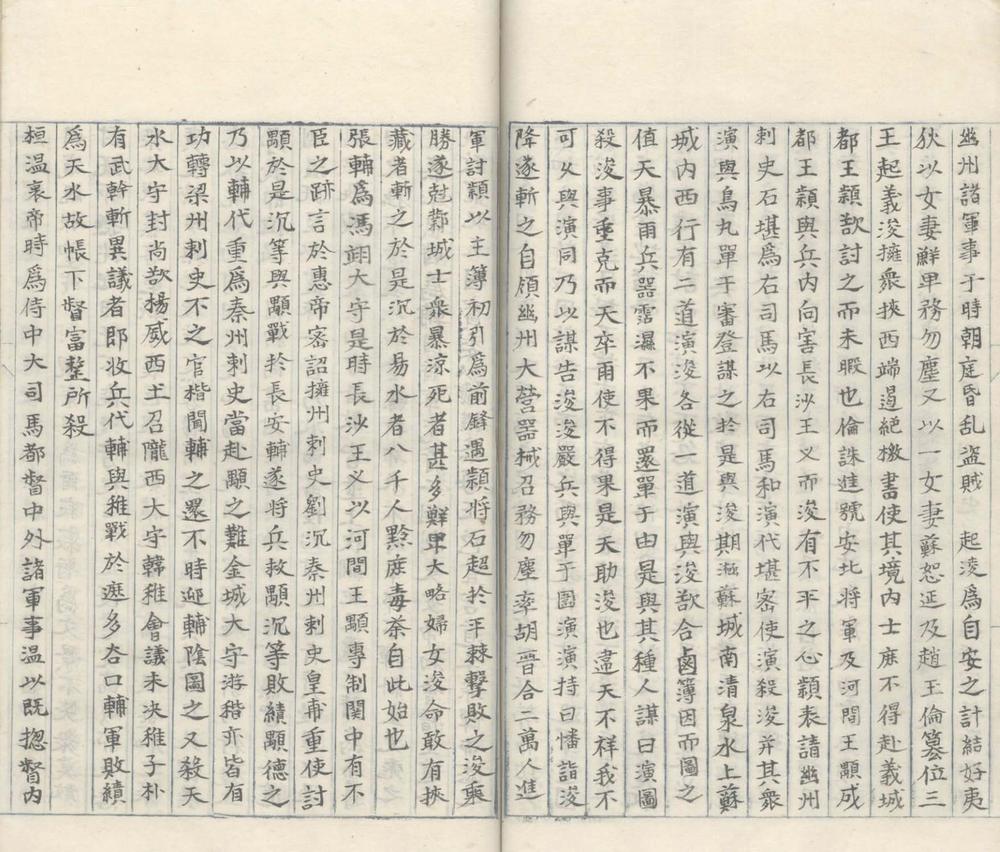 幽州諸軍事于時朝庭昏乱盗賊　起淩為自安之計結好夷
狄以女妻鮮卑務勿塵又以一女妻蘇恕延及趙王倫簒位三
王起義浚擁衆挾西端遏絶檄書使其境内士庶不得赴義城
都王頴欲討之而未暇也倫誅進號安北将軍及河間王顒成
都王頴與兵内向害長沙王乂而浚有不平之心頴表請幽州
刺史石堪為右司馬以右司馬和演代堪密使演殺浚并其衆
演與烏丸單于審登謀之於是與浚期遊蘇城南清泉水上蘇
城内西行有二道演浚各從一道演與浚欲合鹵簿因而圖之
值天暴雨兵器霑濕不果而還單于由是與其種人謀曰演圖
殺浚事垂克而天卒雨使不得果是天助浚也違天不祥我不
可久與演同乃以謀告浚浚嚴兵與單于圍演演持白幡詣浚
降遂斬之自領幽州大營器械召務勿塵率胡晋合二萬人進
軍討頴以主簿初引為前鋒遇頴将石超於平棘撃敗之浚乗
勝遂尅鄴城士衆暴涼死者甚多鮮卑大略婦女浚命敢有挾
藏者斬之於是沉於易水者八千人黔庶毒荼自此始也
張輔為馮翊大守是時長沙王乂以河間王顒專制関中有不
臣之跡言於惠帝密詔擁州刺史劉沉秦州剌史皇甫重使討
顒於是沉等與顒戰於長安輔遂将兵救顒沉等敗績顒德之
乃以輔代重為秦州刺史當赴顒之難金城大守游稭亦皆有
功轉梁州刺史不之官楷聞輔之還不時迎輔陰圖之又殺天
水大守封尚欲楊威西土召隴西大守韓稚會議未决稚子朴
有武幹斬異議者即收兵代輔與稚戰於遮多谷口輔軍敗績
為天水故帳下督富整所殺
桓温哀帝時為侍中大司馬都督中外諸軍事温以既揔督内